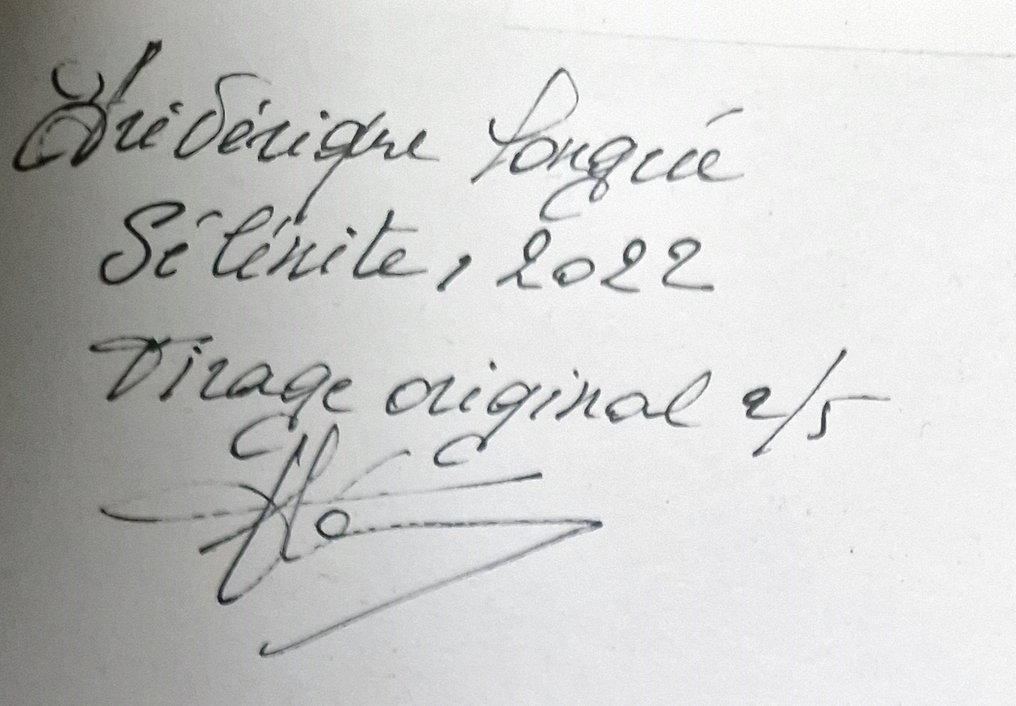 Frédérique Longuée
Sélénite, 2022
Tirage original 2/5